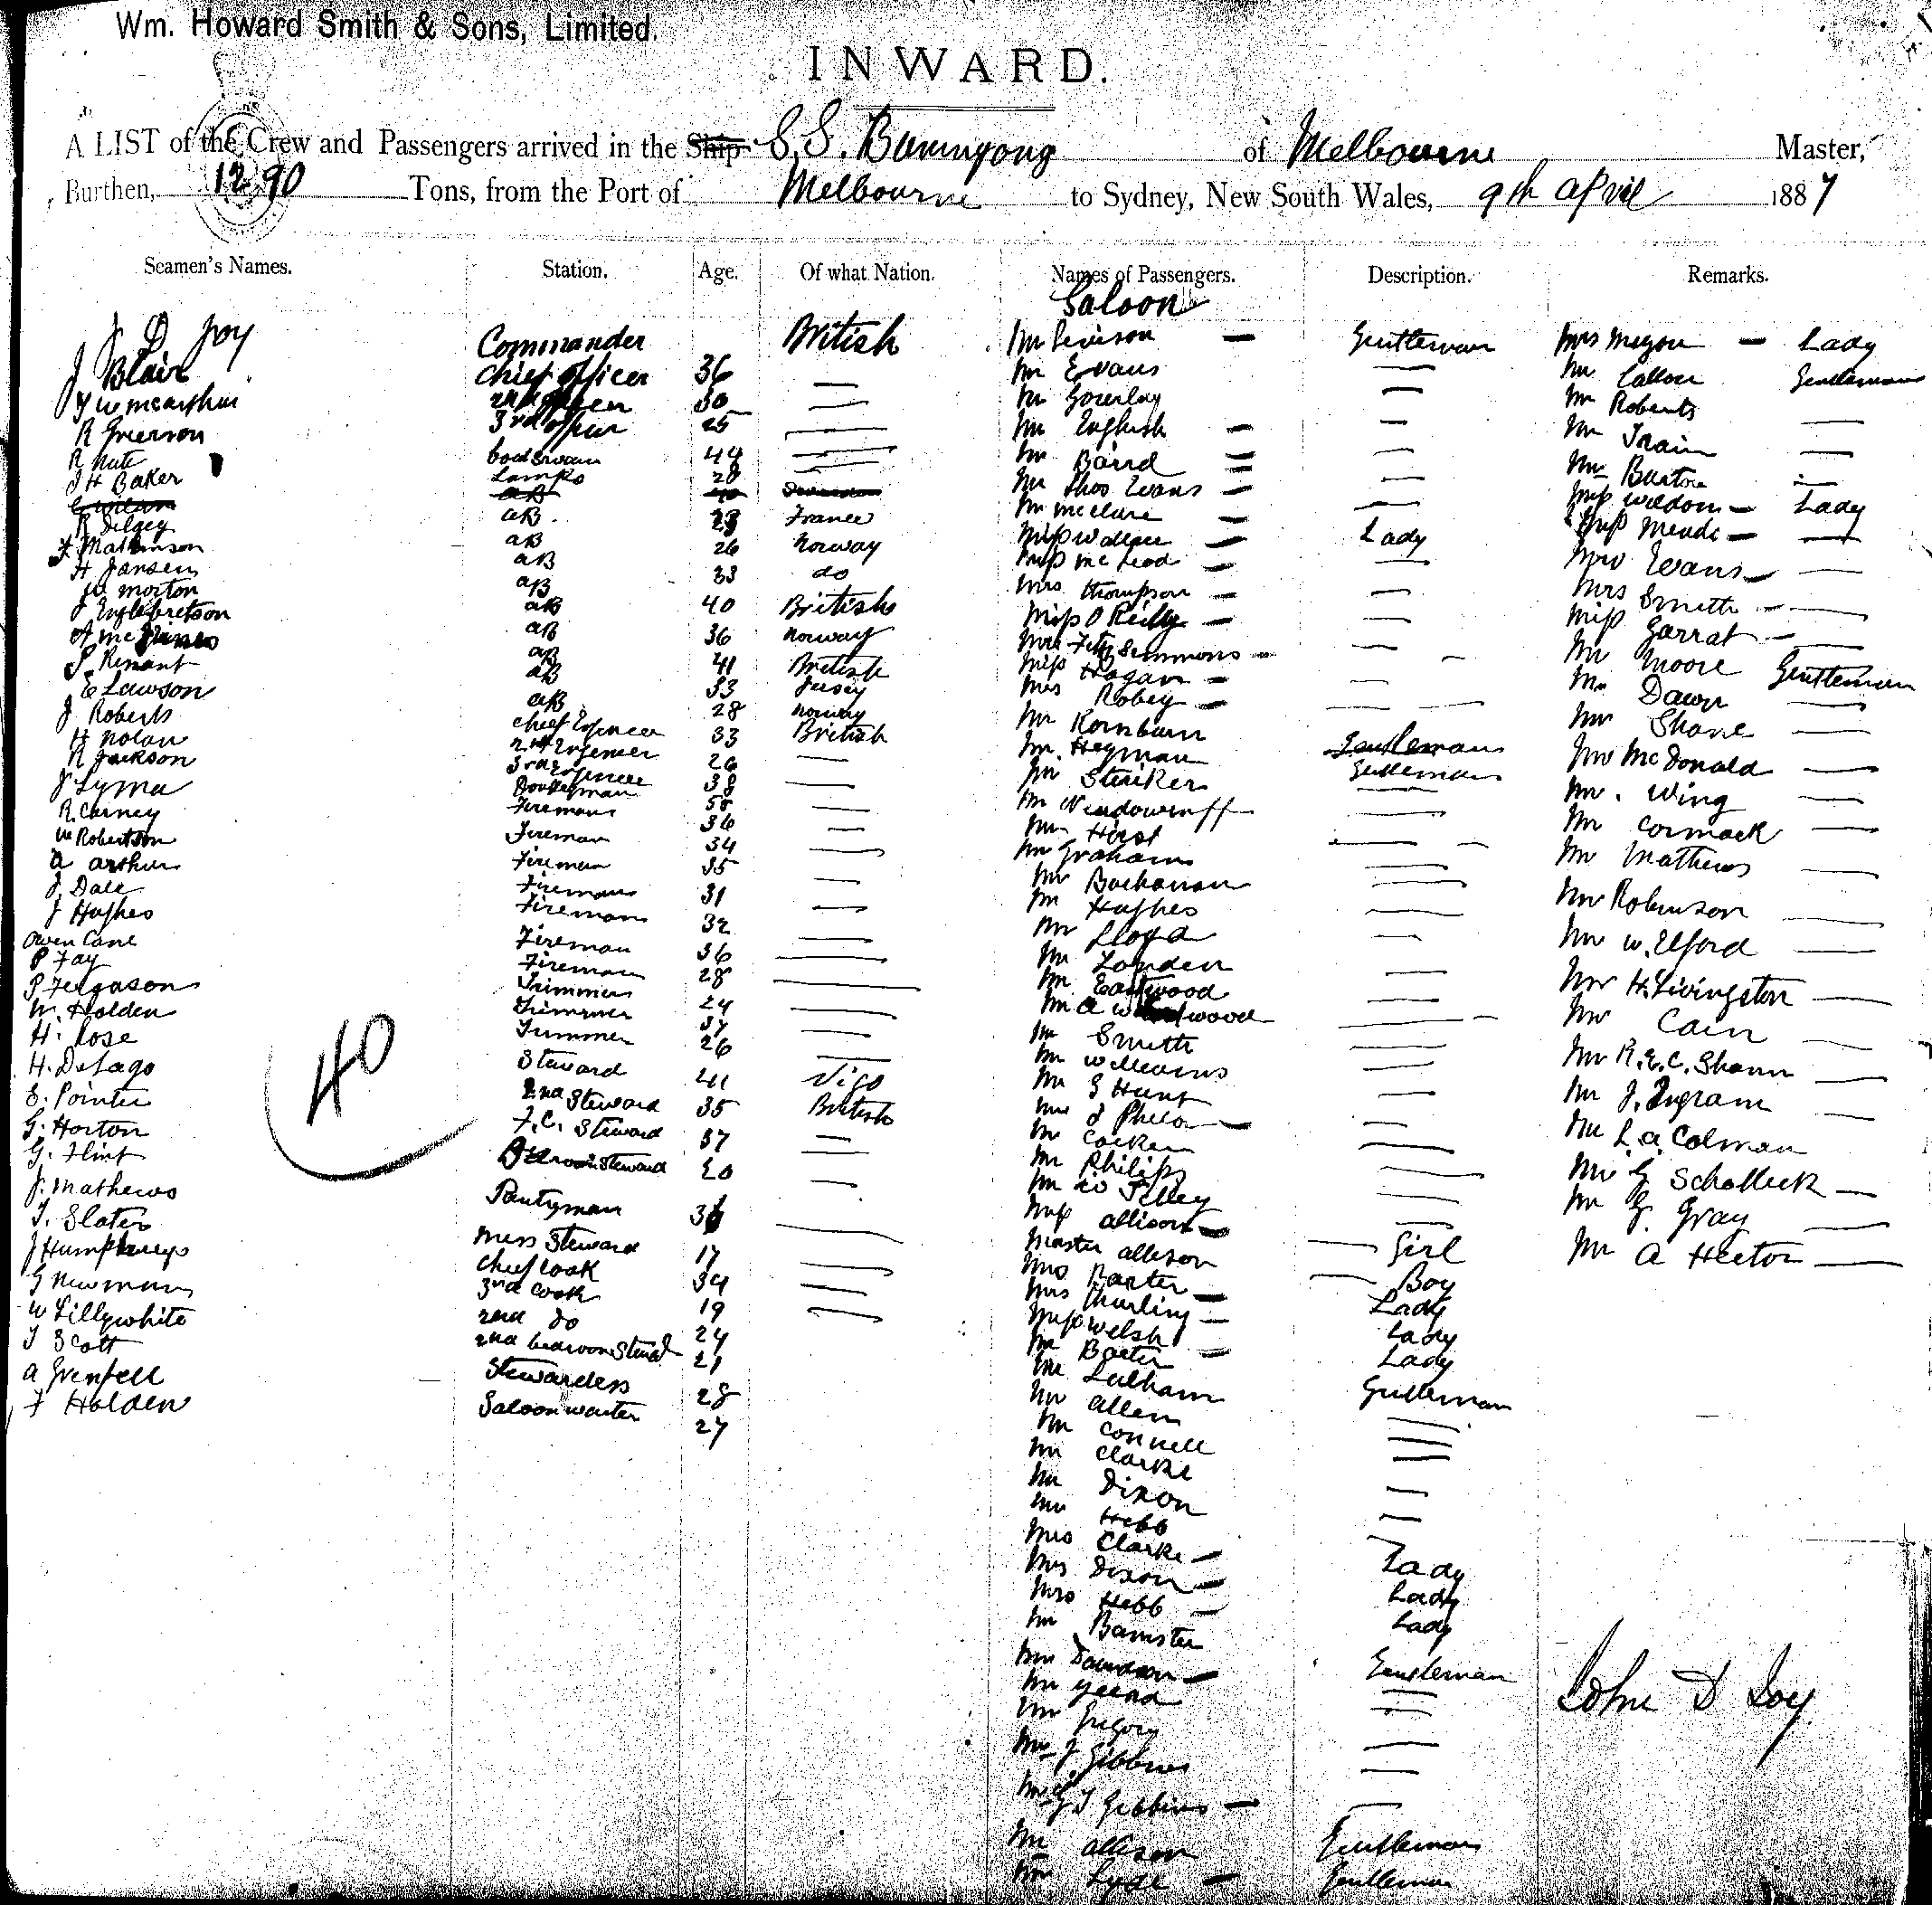 Wm. Howard Smith & Sons, Limited.
INWARD.
A LIST of the Crew and Passengers arrived in the Ship S.S. Buninyong of Melbourne Master,
Burthen, 1290 Tons, from the Port of Melbourne to Sydney, New South Wales, 9th April 1887
Seamen's Names. Station. Age. Of what Nation. Names of Passengers. Description. Remarks.
Saloon
J D Joy Commander British
J Blair Chief Officer 36 —
J W McArthur 2nd Officer 30 —
R Grierson 3rd Officer 25 —
R Nute Boatswain 44 —
J H Baker Lamps 28 —
AB 40
R Delgey AB 23 France
F Mathinson AB 26 Norway
H Jansen AB 33 do
W Morton AB 40 British
J Englebretson AB 36 Norway
AB 41 British
P Renant AB 33 Jersey
E Lawson AB 28 Norway
J Roberts Chief Engineer 33 British
H Nolan 2nd Engineer 26 —
R Jackson 3rd Engineer 38 —
J Lyma Donkeyman 50
R. Carney Fireman 36 —
W Robertson Fireman 34 —
A Arthur Fireman 35
J. Dale Fireman 31 —
J Hughes Fireman 32 —
Owen Cane Fireman 36 —
P Fay Fireman 28 —
P Ferguson Trimmer 24 —
W. Holden Trimmer 37 —
H. Rose Trimmer 26 —
H. DeLago Steward 41 Vigo
E. Pointer 2nd Steward 35 British
G. Horton F.C. Steward 37 —
G. Flint Bedroom Steward 20 —
J. Mathews Pantryman 36 —
T. Slater Mess Steward 17 —
J Humphreys Chief Cook 34 —
G Newman 3rd Cook 19 —
W Lillywhite 2nd do 24
T Scott 2nd bedroom Steward 21
A Grenfell Stewardess 28
F Holden Saloon waiter 27
40
Mr Levison — Gentleman
Mr Evans —
Mr Gourlay —
Mr English — —
Mr Baird — —
Mr Thos Evans — —
Mr McClure — —
Miss Wallace — Lady
Miss McLeod — —
Mrs Thompson — —
Miss O Reilly — —
Mrs Fitzsimmons — —
Miss Hogan — —
Mrs Robey — —
Mr Kornburn Gentleman
Mr. Heyman Gentleman
Mr Steiker —
Mr —
Mr Hirst —
Mr Graham —
Mr Buchanan —
Mr Hughes —
Mr Lloyd —
Mr Landen —
Mr Eastwood —
Mr A W wood —
Mr Smith —
Mr Williams —
Mr G Hunt —
—
Mr —
Mr Philips —
Mr W Tilley —
Miss Allison — Girl
Master Allison Boy
Mrs Baxter — Lady
Mrs Thurling — Lady
Miss Welsh Lady
Mr Baxter — Gentleman
Mr Lulham —
Mr Allen —
Mr Connell —
Mr Clarke —
Mr Dixon —
Mr Hebb —
Mrs Clarke — Lady
Mrs Dixon — Lady
Mrs Hebb — Lady
Mr Bamister Gentleman
Mr Davidson — —
Mr Yeend —
Mr Gregory —
Mr J Gibbins —
Mr G T Gibbins — —
Mr Allison Gentleman
Mr Lyde — Gentleman
Mrs — Lady
Mr Gentleman
Mr Roberts —
Mr Train —
Mr Burton —
Miss Weldom — Lady
Miss Meade — —
Mrs Evans — —
Mrs Smith — —
Miss Garrat — —
Mr Moore Gentleman
Mr Dawn —
Mr Shane —
Mr McDonald —
Mr. Wing —
Mr Cormack —
Mr Mathews —
Mr Robinson —
Mr W. Elford —
Mr H. Livingston —
Mr Cain —
Mr R.E.C. Shann —
Mr J. Ingram —
Mr L.A. Colman
Mr G Scholleck —
Mr G. Gray —
Mr A Hector —
John D Joy